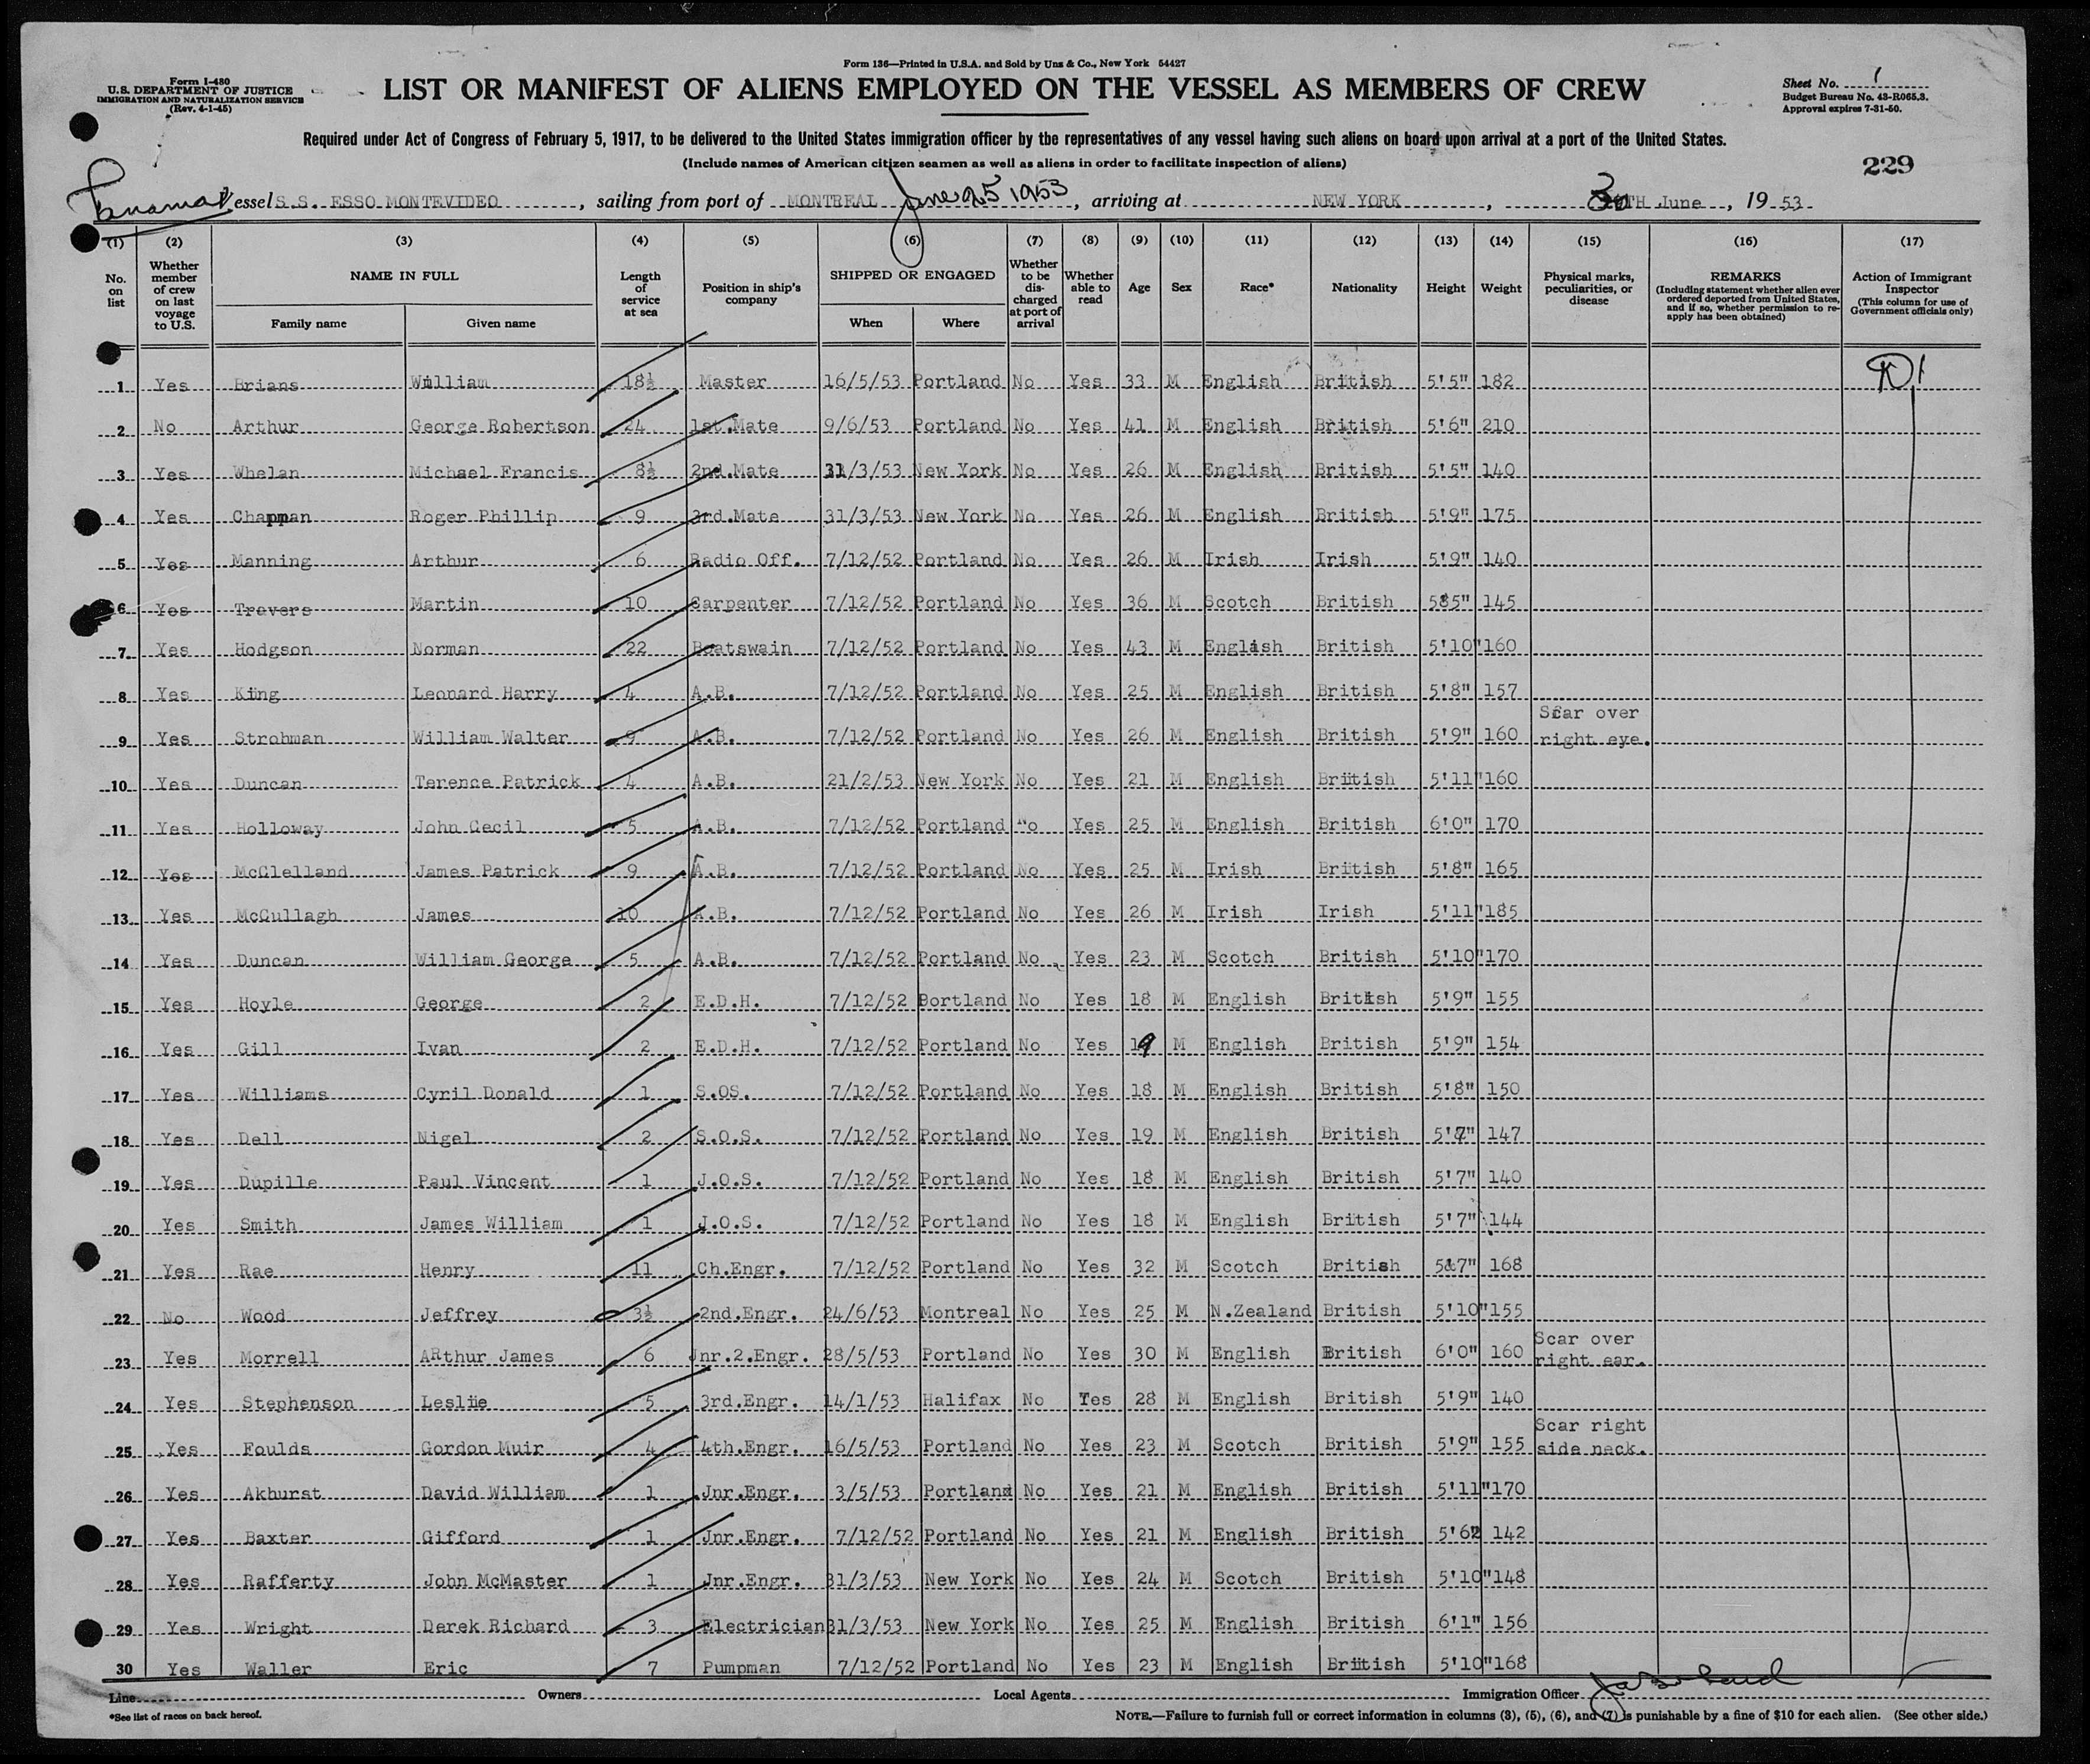 Form 136—Printed in U.S.A. and Sold by Unz & Co., New York 54427
Form I-480
U.S. DEPARTMENT OF JUSTICE
IMMIGRATION AND NATURALIZATION SERVICE
(Rev. 4-1-45)
LIST OR MANIFEST OF ALIENS EMPLOYED ON THE VESSEL AS MEMBERS OF CREW
Sheet No. 1
Budget Bureau No. 43-R065.3.
Approval expires 7-31-50.
Required under Act of Congress of February 5, 1917, to be delivered to the United States immigration officer by the representatives of any vessel having such aliens on board upon arrival at a port of the United States.
(Include names of American citizen seamen as well as aliens in order to facilitate inspection of aliens)
229
Panama Vessel S.S. ESSO MONTEVIDEO, sailing from port of MONTREAL June 25 1953, arriving at NEW YORK, 30TH June, 1953.
(1) (2) (3) (4) (5) (6) (7) (8) (9) (10) (11) (12) (13) (14) (15) (16) (17)
No. on list
Whether member of crew on last voyage to U.S.
NAME IN FULL
Family name Given name
Length of service at sea
Position in ship's company
SHIPPED OR ENGAGED
When Where
Whether to be discharged at port of arrival
Whether able to read
Age
Sex
Race*
Nationality
Height
Weight
Physical marks, peculiarities, or disease
REMARKS
(Including statement whether alien ever ordered deported from United States, and if so, whether permission to re-apply has been obtained)
Action of Immigrant Inspector
(This column for use of Government officials only)
1 Yes Brians William 18½ Master 16/5/53 Portland No Yes 33 M English British 5'5" 182
2 No Arthur George Robertson 24 1st.Mate 9/6/53 Portland No Yes 41 M English British 5'6" 210
3 Yes Whelan Michael Francis 8½ 2nd.Mate 31/3/53 New York No Yes 26 M English British 5'5" 140
4 Yes Chapman Roger Phillip 9 3rd.Mate 31/3/53 New York No Yes 26 M English British 5'9" 175
5 Yes Manning Arthur 6 Radio Off. 7/12/52 Portland No Yes 26 M Irish Irish 5'9" 140
6 Yes Travers Martin 10 Carpenter 7/12/52 Portland No Yes 36 M Scotch British 5'5" 145
7 Yes Hodgson Norman 22 Boatswain 7/12/52 Portland No Yes 43 M English British 5'10" 160
8 Yes King Leonard Harry 4 A.B. 7/12/52 Portland No Yes 25 M English British 5'8" 157
9 Yes Strohman William Walter 9 A.B. 7/12/52 Portland No Yes 26 M English British 5'9" 160 Scar over right eye.
10 Yes Duncan Terence Patrick 4 A.B. 21/2/53 New York No Yes 21 M English British 5'11" 160
11 Yes Holloway John Cecil 5 A.B. 7/12/52 Portland No Yes 25 M English British 6'0" 170
12 Yes McClelland James Patrick 9 A.B. 7/12/52 Portland No Yes 25 M Irish British 5'8" 165
13 Yes McCullagh James 10 A.B. 7/12/52 Portland No Yes 26 M Irish Irish 5'11" 185
14 Yes Duncan William George 5 A.B. 7/12/52 Portland No Yes 23 M Scotch British 5'10" 170
15 Yes Hoyle George 2 E.D.H. 7/12/52 Portland No Yes 18 M English British 5'9" 155
16 Yes Gill Ivan 2 E.D.H. 7/12/52 Portland No Yes 19 M English British 5'9" 154
17 Yes Williams Cyril Donald 1 S.OS. 7/12/52 Portland No Yes 18 M English British 5'8" 150
18 Yes Dell Nigel 2 S.O.S. 7/12/52 Portland No Yes 19 M English British 5'7" 147
19 Yes Dupille Paul Vincent 1 J.O.S. 7/12/52 Portland No Yes 18 M English British 5'7" 140
20 Yes Smith James William 1 J.O.S. 7/12/52 Portland No Yes 18 M English British 5'7" 144
21 Yes Rae Henry 11 Ch.Engr. 7/12/52 Portland No Yes 32 M Scotch British 5'7" 168
22 No Wood Jeffrey 3½ 2nd.Engr. 24/6/53 Montreal No Yes 25 M N.Zealand British 5'10" 155
23 Yes Morrell ARthur James 6 Jnr.2.Engr. 28/5/53 Portland No Yes 30 M English British 6'0" 160 Scar over right ear.
24 Yes Stephenson Leslie 5 3rd.Engr. 14/1/53 Halifax No Yes 28 M English British 5'9" 140
25 Yes Foulds Gordon Muir 4 4th.Engr. 16/5/53 Portland No Yes 23 M Scotch British 5'9" 155 Scar right side neck.
26 Yes Akhurst David William 1 Jnr.Engr. 3/5/53 Portland No Yes 21 M English British 5'11" 170
27 Yes Baxter Gifford 1 Jnr.Engr. 7/12/52 Portland No Yes 21 M English British 5'6" 142
28 Yes Rafferty John McMaster 1 Jnr.Engr. 31/3/53 New York No Yes 24 M Scotch British 5'10" 148
29 Yes Wright Derek Richard 3 Electrician 31/3/53 New York No Yes 25 M English British 6'1" 156
30 Yes Waller Eric 7 Pumpman 7/12/52 Portland No Yes 23 M English British 5'10" 168
Line Owners Local Agents Immigration Officer
*See list of races on back hereof.
NOTE.—Failure to furnish full or correct information in columns (3), (5), (6), and (7) is punishable by a fine of $10 for each alien. (See other side.)